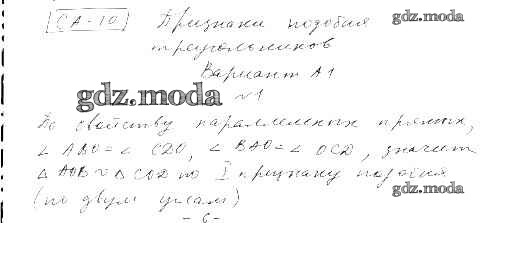 СА-10 Признаки подобия gdz.moda
треугольников
Вариант А1
gdz.moda №1
По свойству параллельных прямых,
∠ АВО = ∠ CDO, ∠ BAO = ∠ OCD, значит
△ AOB ∾ △ COD по I признаку подобия
(по двум углам) gdz.moda
- 6 -